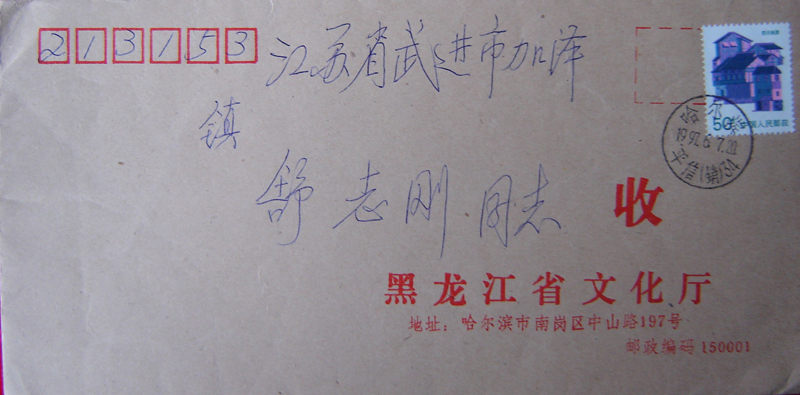 213153
江苏省武进市加泽
镇
舒志刚同志 收
50 中国人民邮政
哈尔滨
199 .6.7.20
黑龙江省文化厅
地址：哈尔滨市南岗区中山路197号
邮政编码 150001